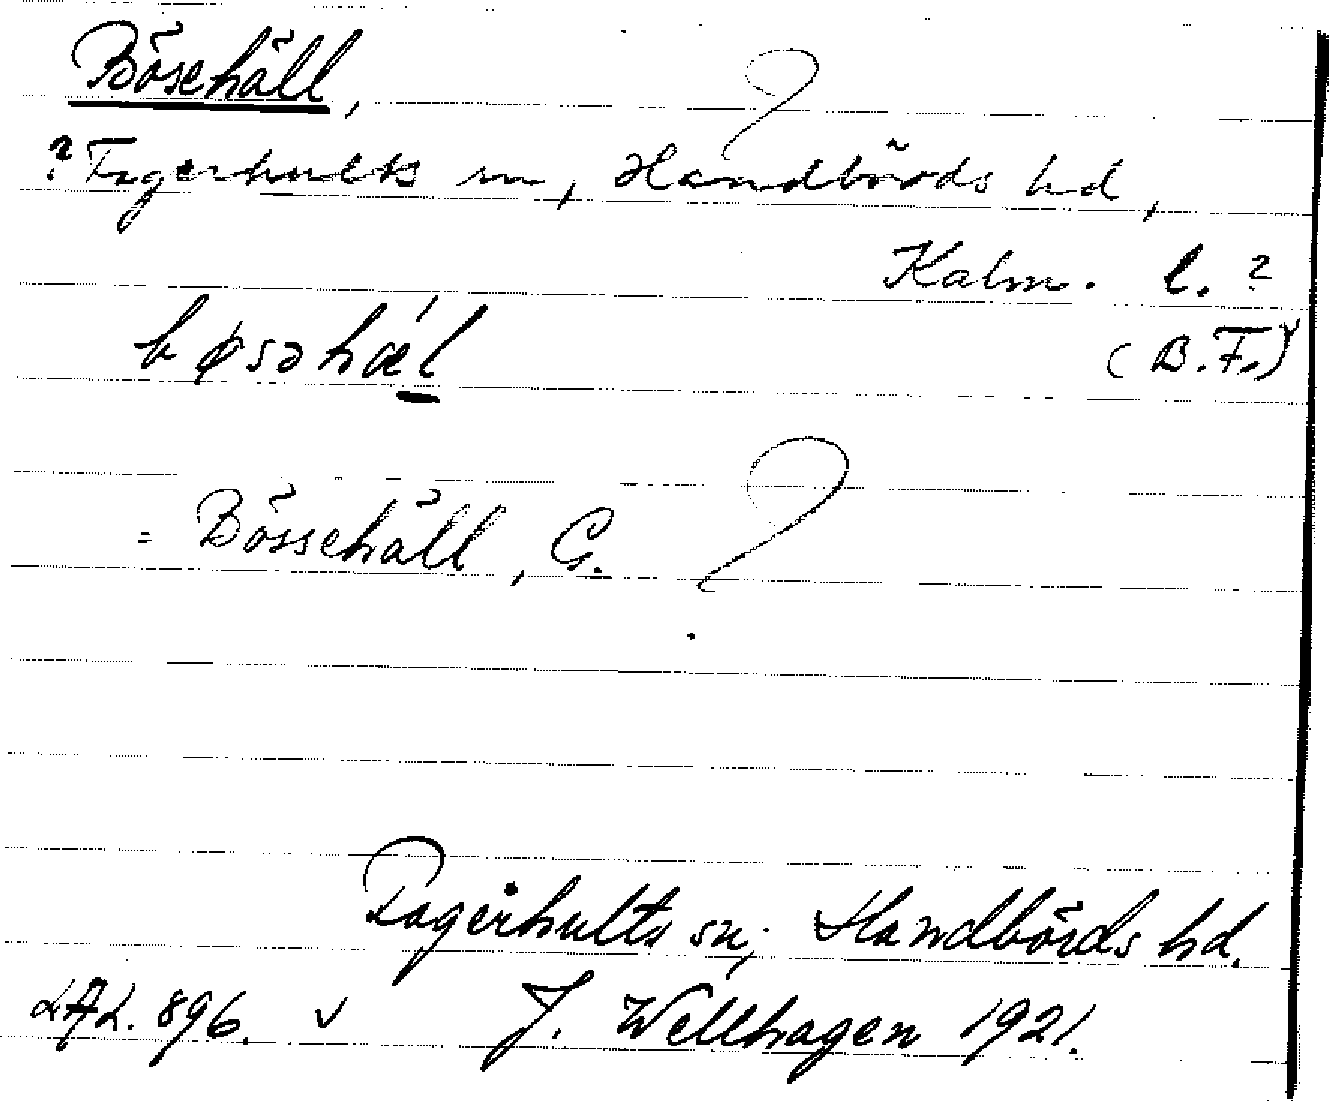 Bösehäll, ?
? Fagerhults sn, Handbörds hd,
Kalm. l. ?
bøsəhǽ̲l (B.F.)
= Bössehäll, G. ?
Fagerhults sn, Handbörds hd.
LAL. 896. v J. Wellhagen 1921.